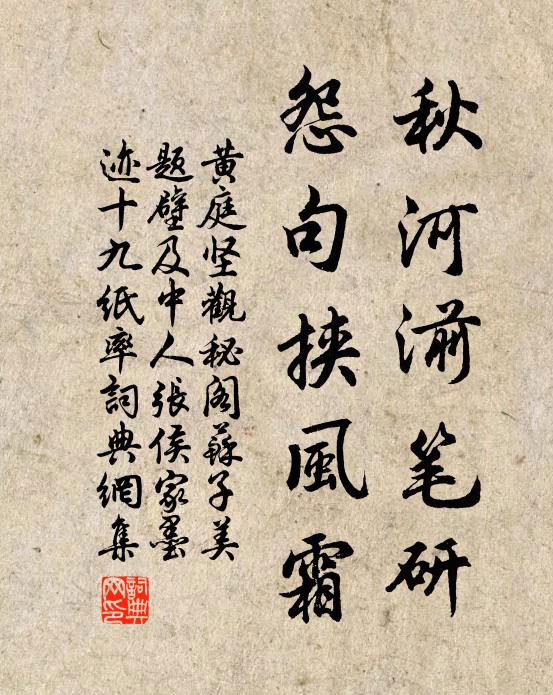 秋河湔笔研
怨句挟風霜
黄庭坚觀秘阁蘇子美
题壁及中人張侯家墨
迹十九紙率詞典網集
詞典
网印